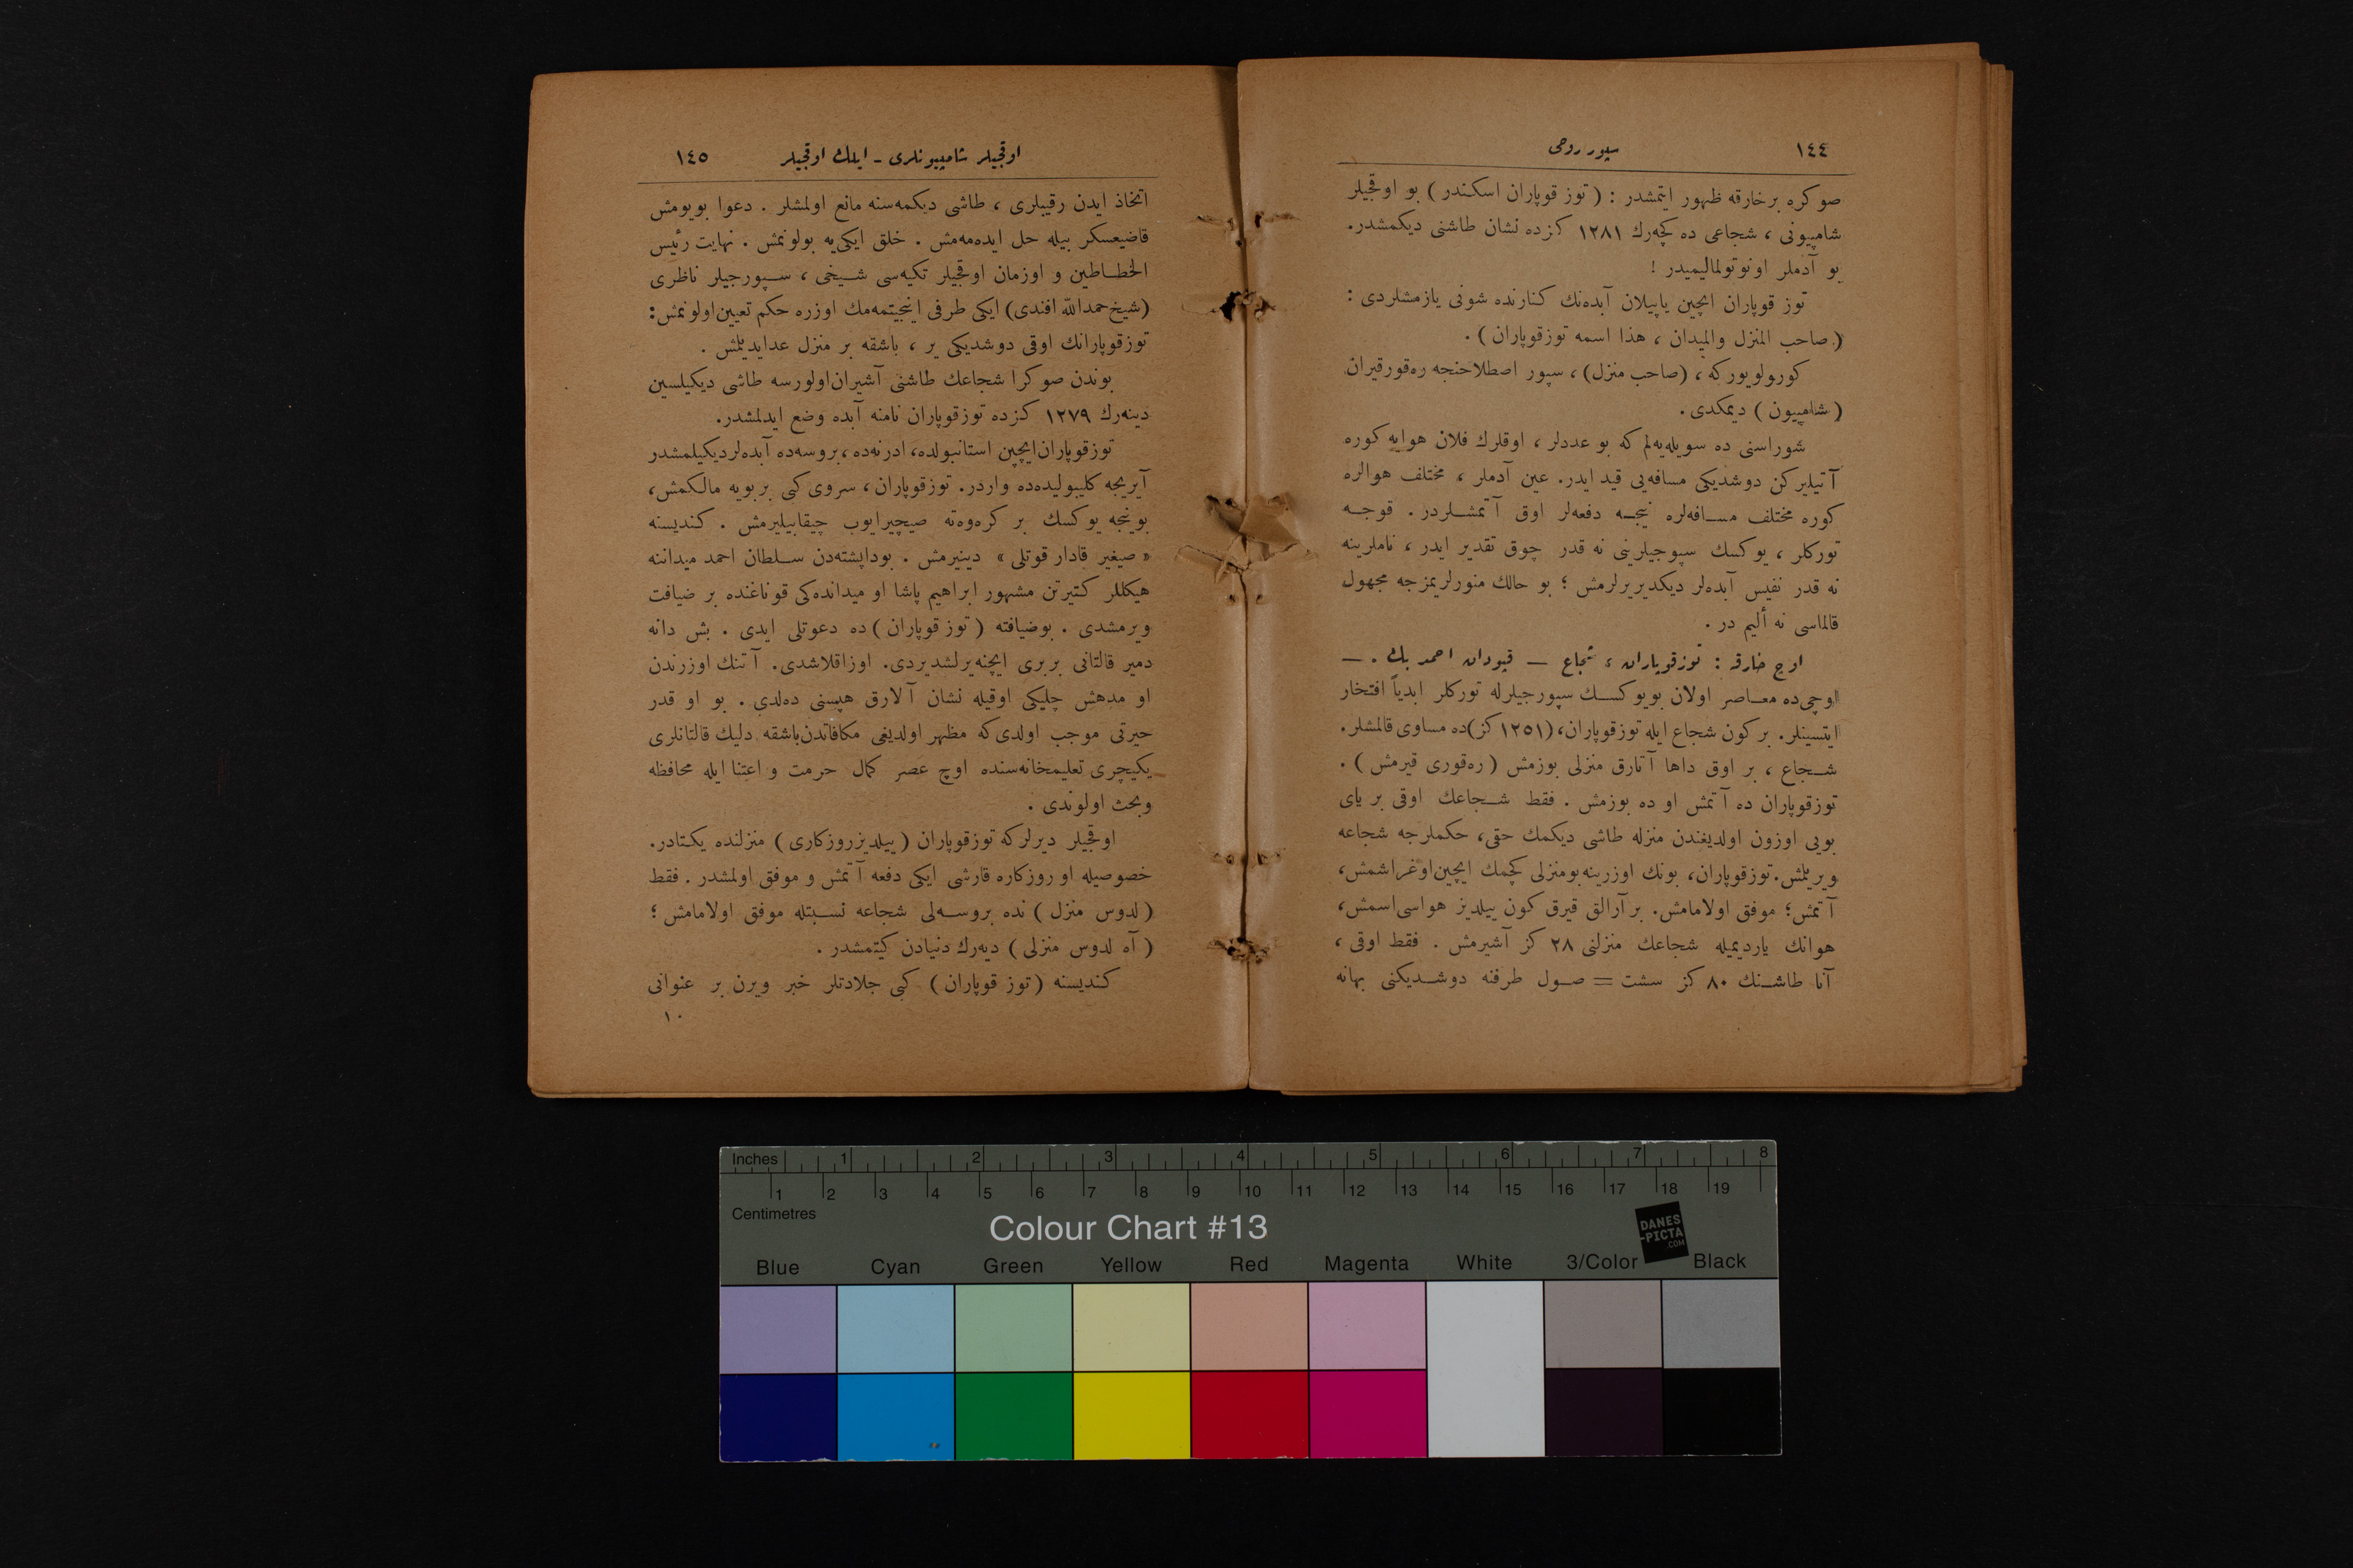 ١٤٤
سپور روحی
صوکره برخارقه ظهور ایتمشدر : ( توز قوپاران اسکندر ) بو اوقجیلر
شامپیونی ، شجاعی ده کچه‌رك ١٢٨١ کزده نشان طاشنی دیکمشدر.
بو آدملر اونوتولمالیمیدر !
توز قوپاران ایچین یاپیلان آبده‌نك کنارنده شونی یازمشلردی :
( صاحب المنزل والمیدان ، هذا اسمه توزقوپاران ) .
کورولویورکه ، (صاحب منزل) ، سپور اصطلاحنجه ره‌قورقیران
( شامپیون ) دیمکدی .
شوراسنی ده سویله‌یه‌لم که بو عددلر ، اوقلرك فلان هوایه کوره
آتیلیرکن دوشدیکی مسافه‌یی قید ایدر. عین آدملر ، مختلف هوالره
کوره مختلف مسافه‌لره نیجه دفعه‌لر اوق آتمشلردر . قوجه
تورکلر ، یوکسك سپوجیلرینی نه قدر چوق تقدیر ایدر ، ناملرینه
نه قدر نفیس آبده‌لر دیکدیریرلرمش ؛ بو حالك منورلریمزجه مجهول
قالماسی نه ألیم در .
اوچ خارقه : توزقوپاران ، شجاع — قپودان احمد بك . —
اوچی‌ده معاصر اولان بویوکسك سپورجیلرله تورکلر ابدیاً افتخار
ایتسینلر. برکون شجاع ایله توزقوپاران، (١٢٥١ کز)ده مساوی قالمشلر.
شجاع ، بر اوق داها آتارق منزلی بوزمش ( ره‌قوری قیرمش ) .
توزقوپاران ده آتمش او ده بوزمش . فقط شجاعك اوقی بر یای
بویی اوزون اولدیغندن منزله طاشی دیکمك حقی، حکملرجه شجاعه
ویریلمش. توزقوپاران، بونك اوزرینه بومنزلی کچمك ایچین اوغراشمش،
آتمش؛ موفق اولامامش. برآرالق قیرق کون ییلدیز هواسی اسمش،
هوانك یاردیمیله شجاعك منزلنی ٢٨ کز آشیرمش . فقط اوقی ،
آنا طاشنك ٨٠ کز سشت = صول طرفنه دوشدیکنی بهانه
اوقجیلر شامپیونلری - ایلك اوقجیلر
١٤٥
اتخاذ ایدن رقیبلری ، طاشی دیکمه‌سنه مانع اولمشلر . دعوا بویومش
قاضیعسکر بیله حل ایده‌مه‌مش . خلق ایکی‌یه بولونمش . نهایت رئیس
الخطاطین و اوزمان اوقجیلر تکیه‌سی شیخی ، سپورجیلر ناظری
(شیخ حمدالله افندی) ایکی طرفی اینجیتمه‌مك اوزره حکم تعیین اولونمش :
توزقوپارانك اوقی دوشدیکی یر ، باشقه بر منزل عدایدیلمش .
بوندن صوکرا شجاعك طاشنی آشیران اولورسه طاشی دیکیلسین
دینه‌رك ١٢٧٩ کزده توزقوپاران نامنه آبده وضع ایدلمشدر.
توزقوپاران ایچین استانبولده، ادرنه‌ده ، بروسه‌ده آبده‌لردیکیلمشدر
آیریجه کلیبولیده‌ده واردر. توزقوپاران، سروی کبی بربویه مالکمش،
بوینجه یوکسك بر کره‌وه‌ته صیچیرایوب چیقابیلیرمش . کندیسنه
« صیغیر قادار قوتلی » دینیرمش . بوداپشته‌دن سلطان احمد میداننه
هیکللر کتیرتن مشهور ابراهیم پاشا او میدانده‌کی قوناغنده بر ضیافت
ویرمشدی . بوضیافته ( توز قوپاران ) ده دعوتلی ایدی . بش دانه
دمیر قالقانی بربری ایچنه یرلشدیردی. اوزاقلاشدی. آتنك اوزرندن
او مدهش چلیکی اوقیله نشان آلارق هپسنی ده‌لدی . بو او قدر
حیرتی موجب اولدی‌که مظهر اولدیغی مکافاتدن باشقه دلیك قالقانلری
یکیچری تعلیمخانه‌سنده اوچ عصر کمال حرمت و اعتنا ایله محافظه
وبحث اولوندی .
اوقجیلر دیرلرکه توزقوپاران ( ییلدیزروزکاری ) منزلنده یکتادر.
خصوصیله او روزکاره قارشی ایکی دفعه آتمش و موفق اولمشدر . فقط
( لدوس منزل ) نده بروسه‌لی شجاعه نسبتله موفق اولامامش ؛
( آه لدوس منزلی ) دیه‌رك دنیادن کیتمشدر .
کندیسنه ( توز قوپاران ) کبی جلادتلر خبر ویرن بر عنوانی
١٠
Inches 1 2 3 4 5 6 7 8
1 2 3 4 5 6 7 8 9 10 11 12 13 14 15 16 17 18 19
Centimetres
Colour Chart #13
DANES
-PICTA
.COM
Blue Cyan Green Yellow Red Magenta White 3/Color Black